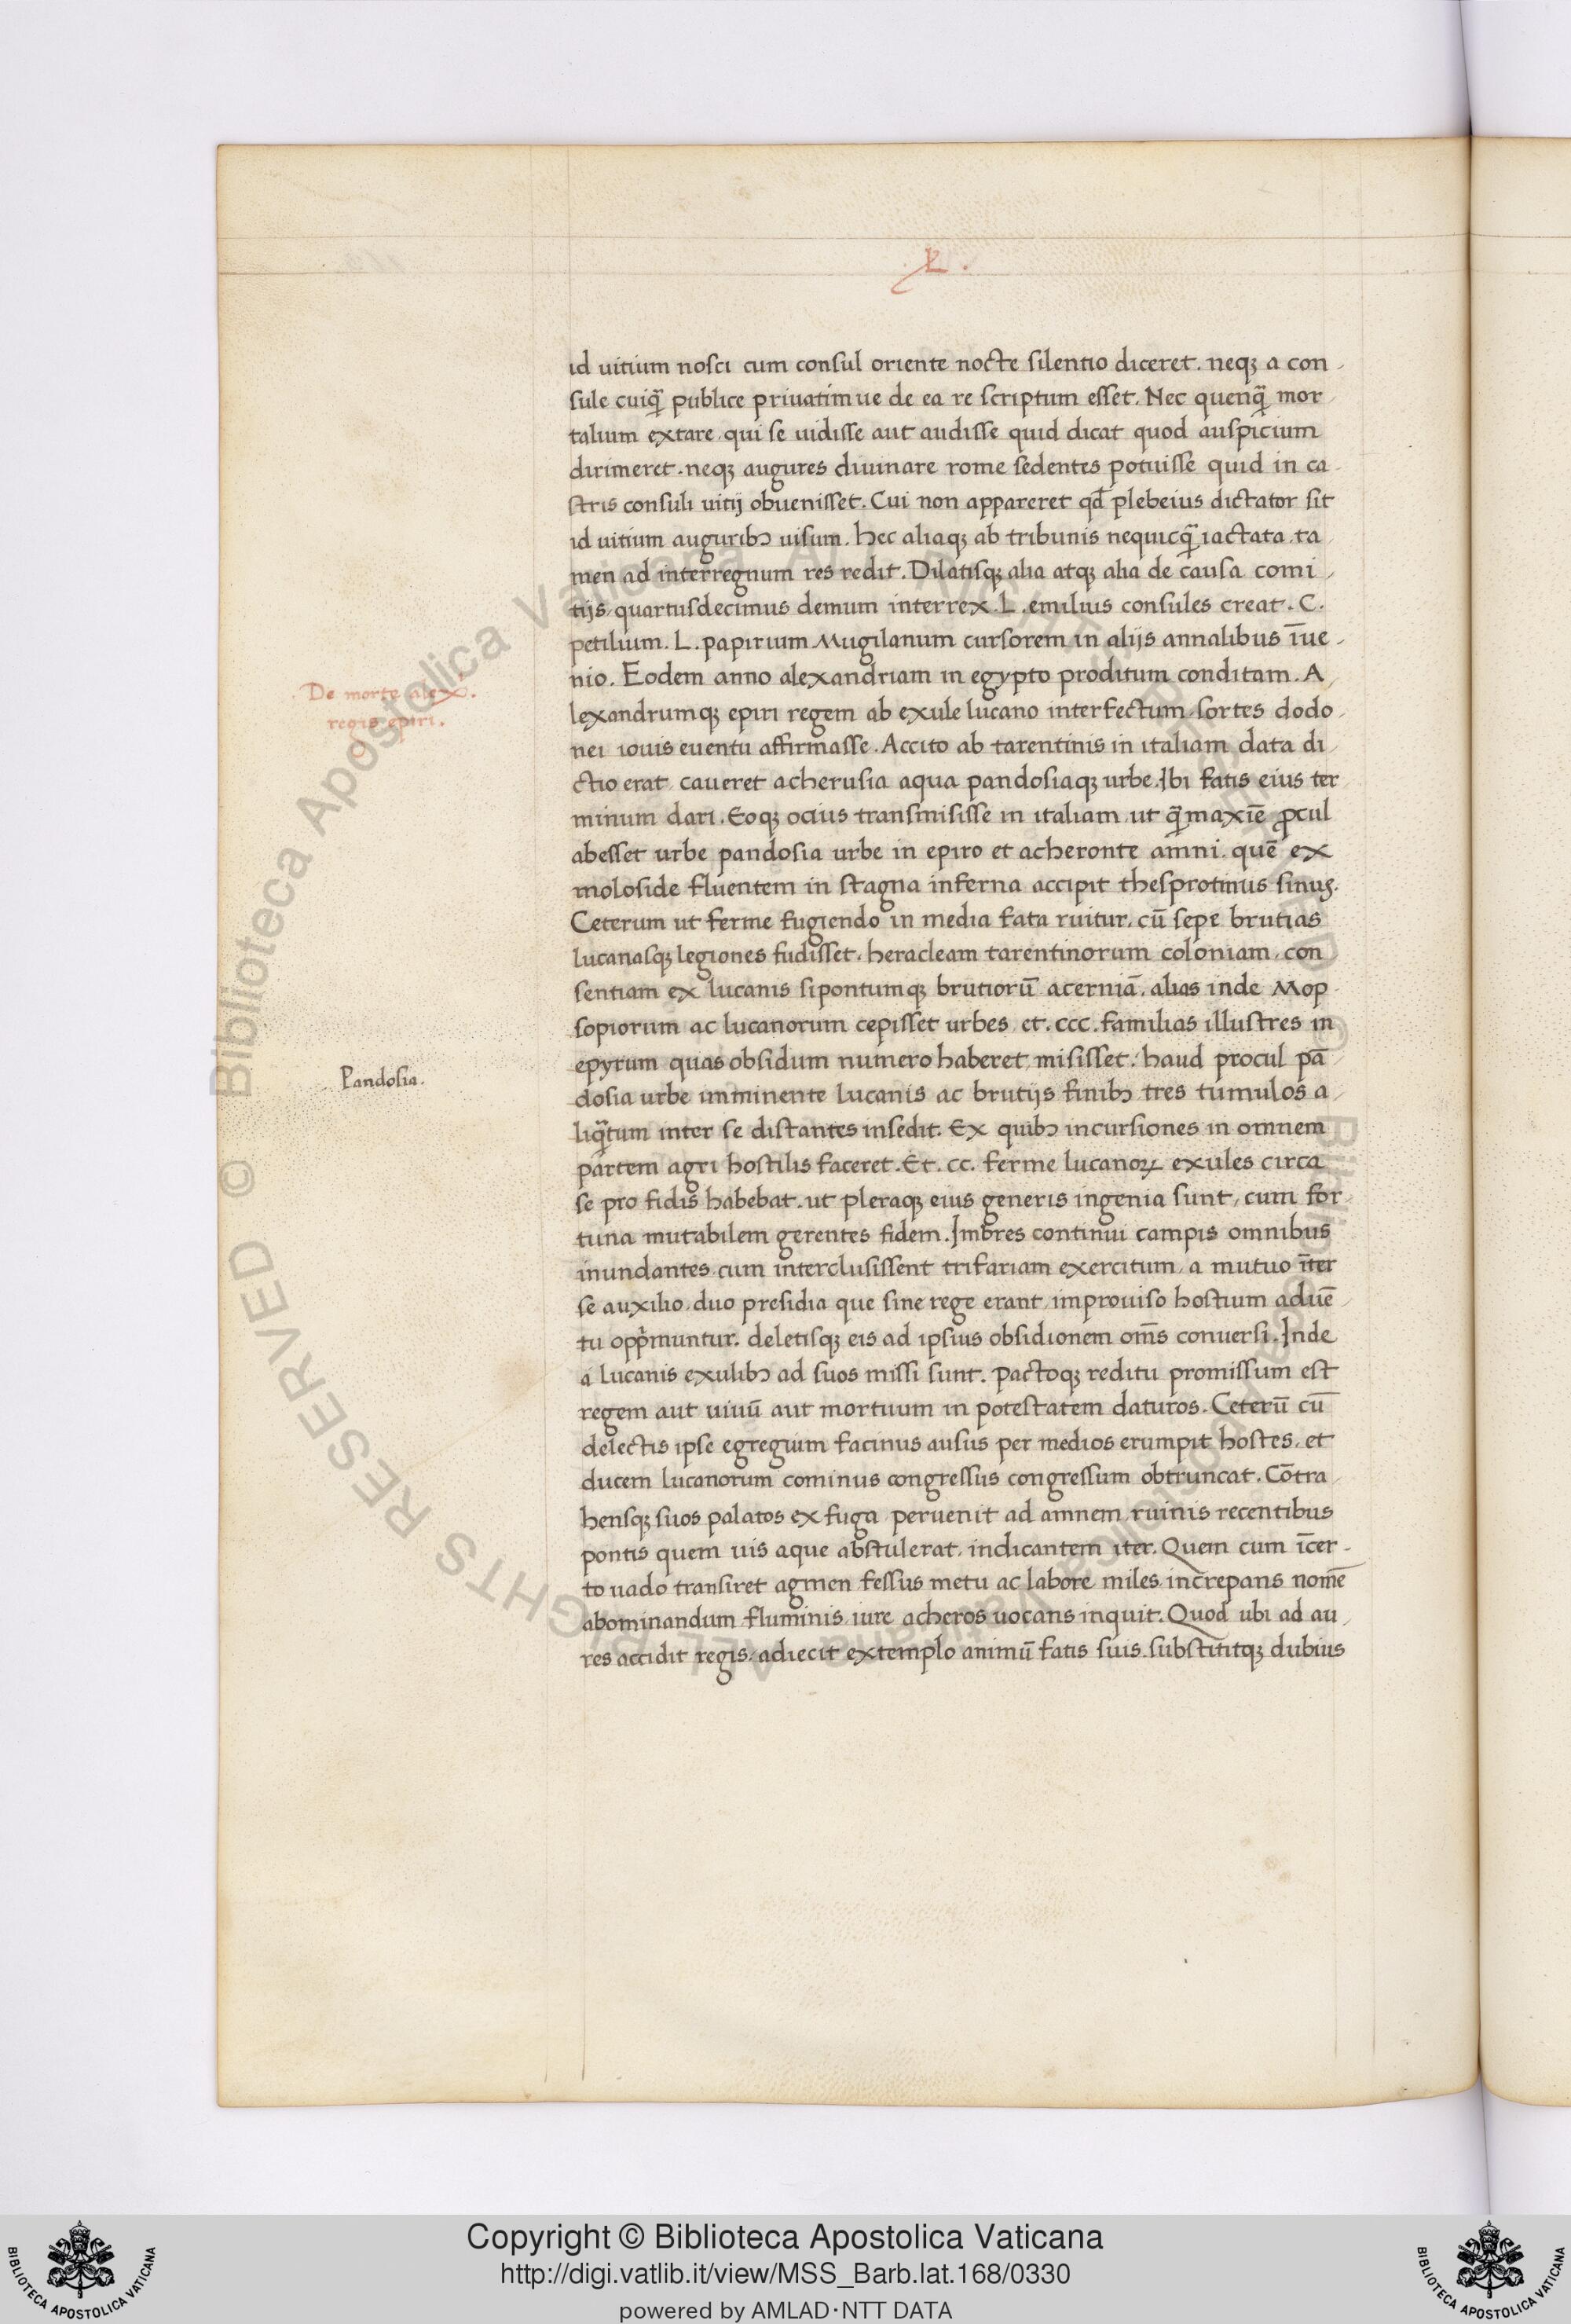 L.
id uitium nosci cum consul oriente nocte silentio diceret. neqꝫ a con-
sule cuiqͣ̃ publice priuatimue de ea re scriptum esset. Nec quenqͣ̃ mor
talium extare, qui se uidisse aut audisse quid dicat quod auspicium
dirimeret. neqꝫ augures diuinare rome sedentes potuisse quid in ca-
stris consuli uitij obuenisset. Cui non appareret qđ plebeius dictator sit
id uitium auguribꝫ uisum. hec aliaqꝫ ab tribunis nequicqͣ̃ iactata. ta
men ad interregnum res redit. Dilatisqꝫ alia atqꝫ alia de causa comi-
tijs, quartusdecimus demum interrex. L. emilius consules creat. C.
petilium. L. papirium Mugilanum cursorem in alijs annalibus īue-
nio. Eodem anno alexandriam in egypto proditum conditam. A-
lexandrumqꝫ epiri regem ab exule lucano interfectum, sortes dodo-
nei iouis euentu affirmasse. Accito ab tarentinis in italiam data di
ctio erat, caueret acherusia aqua pandosiaqꝫ urbe. Ibi fatis eius ter
minum dari. Eoqꝫ ocius transmisisse in italiam, ut qͣ̃ maxiē ꝓcul
abesset urbe pandosia urbe in epiro et acheronte amni. quē ex
moloside fluentem in stagna inferna accipit thesprotinus sinus.
Ceterum ut ferme fugiendo in media fata ruitur, cū sepe brutias
lucanasqꝫ legiones fudisset, heracleam tarentinorum coloniam, con
sentiam ex lucanis sipontumqꝫ brutiorū acerniā, alias inde Mop-
sopiorum ac lucanorum cepisset urbes, et. ccc. familias illustres in
epyrum quas obsidum numero haberet, misisset. haud procul pā
dosia urbe imminente lucanis ac brutijs finibꝫ tres tumulos a-
liqͣ̃tum inter se distantes insedit. Ex quibꝫ incursiones in omnem
partem agri hostilis faceret. Et. cc. ferme lucanoꝝ exules circa
se pro fidis habebat. ut pleraqꝫ eius generis ingenia sunt, cum for
tuna mutabilem gerentes fidem. Imbres continui campis omnibus
inundantes, cum interclusissent trifariam exercitum, a mutuo īter
se auxilio, duo presidia que sine rege erant, improuiso hostium aduē-
tu opprͥmuntur. deletisqꝫ eis ad ipsius obsidionem om̄s conuersi. Inde
a lucanis exulibꝫ ad suos missi sunt. pactoqꝫ reditu promissum est
regem aut uiuū aut mortuum in potestatem daturos. Ceterū cū
delectis ipse egregium facinus ausus per medios erumpit hostes, et
ducem lucanorum cominus congressus congressum obtruncat. Cōtra-
hensqꝫ suos palatos ex fuga, peruenit ad amnem ruinis recentibus
pontis quem uis aque abstulerat, indicantem iter. Quem cum īcer-
to uado transiret agmen fessus metu ac labore miles increpans nomē
abominandum fluminis iure acheros uocans inquit. Quod ubi ad au-
res accidit regis, adiecit extemplo animū fatis suis. substititqꝫ dubius
De morte alex.
regis epiri.
Pandosia.
© Biblioteca Apostolica Vaticana ALL RIGHTS RESERVED
Copyright © Biblioteca Apostolica Vaticana
http://digi.vatlib.it/view/MSS_Barb.lat.168/0330
powered by AMLAD·NTT DATA
BIBLIOTECA APOSTOLICA VATICANA
BIBLIOTECA APOSTOLICA VATICANA